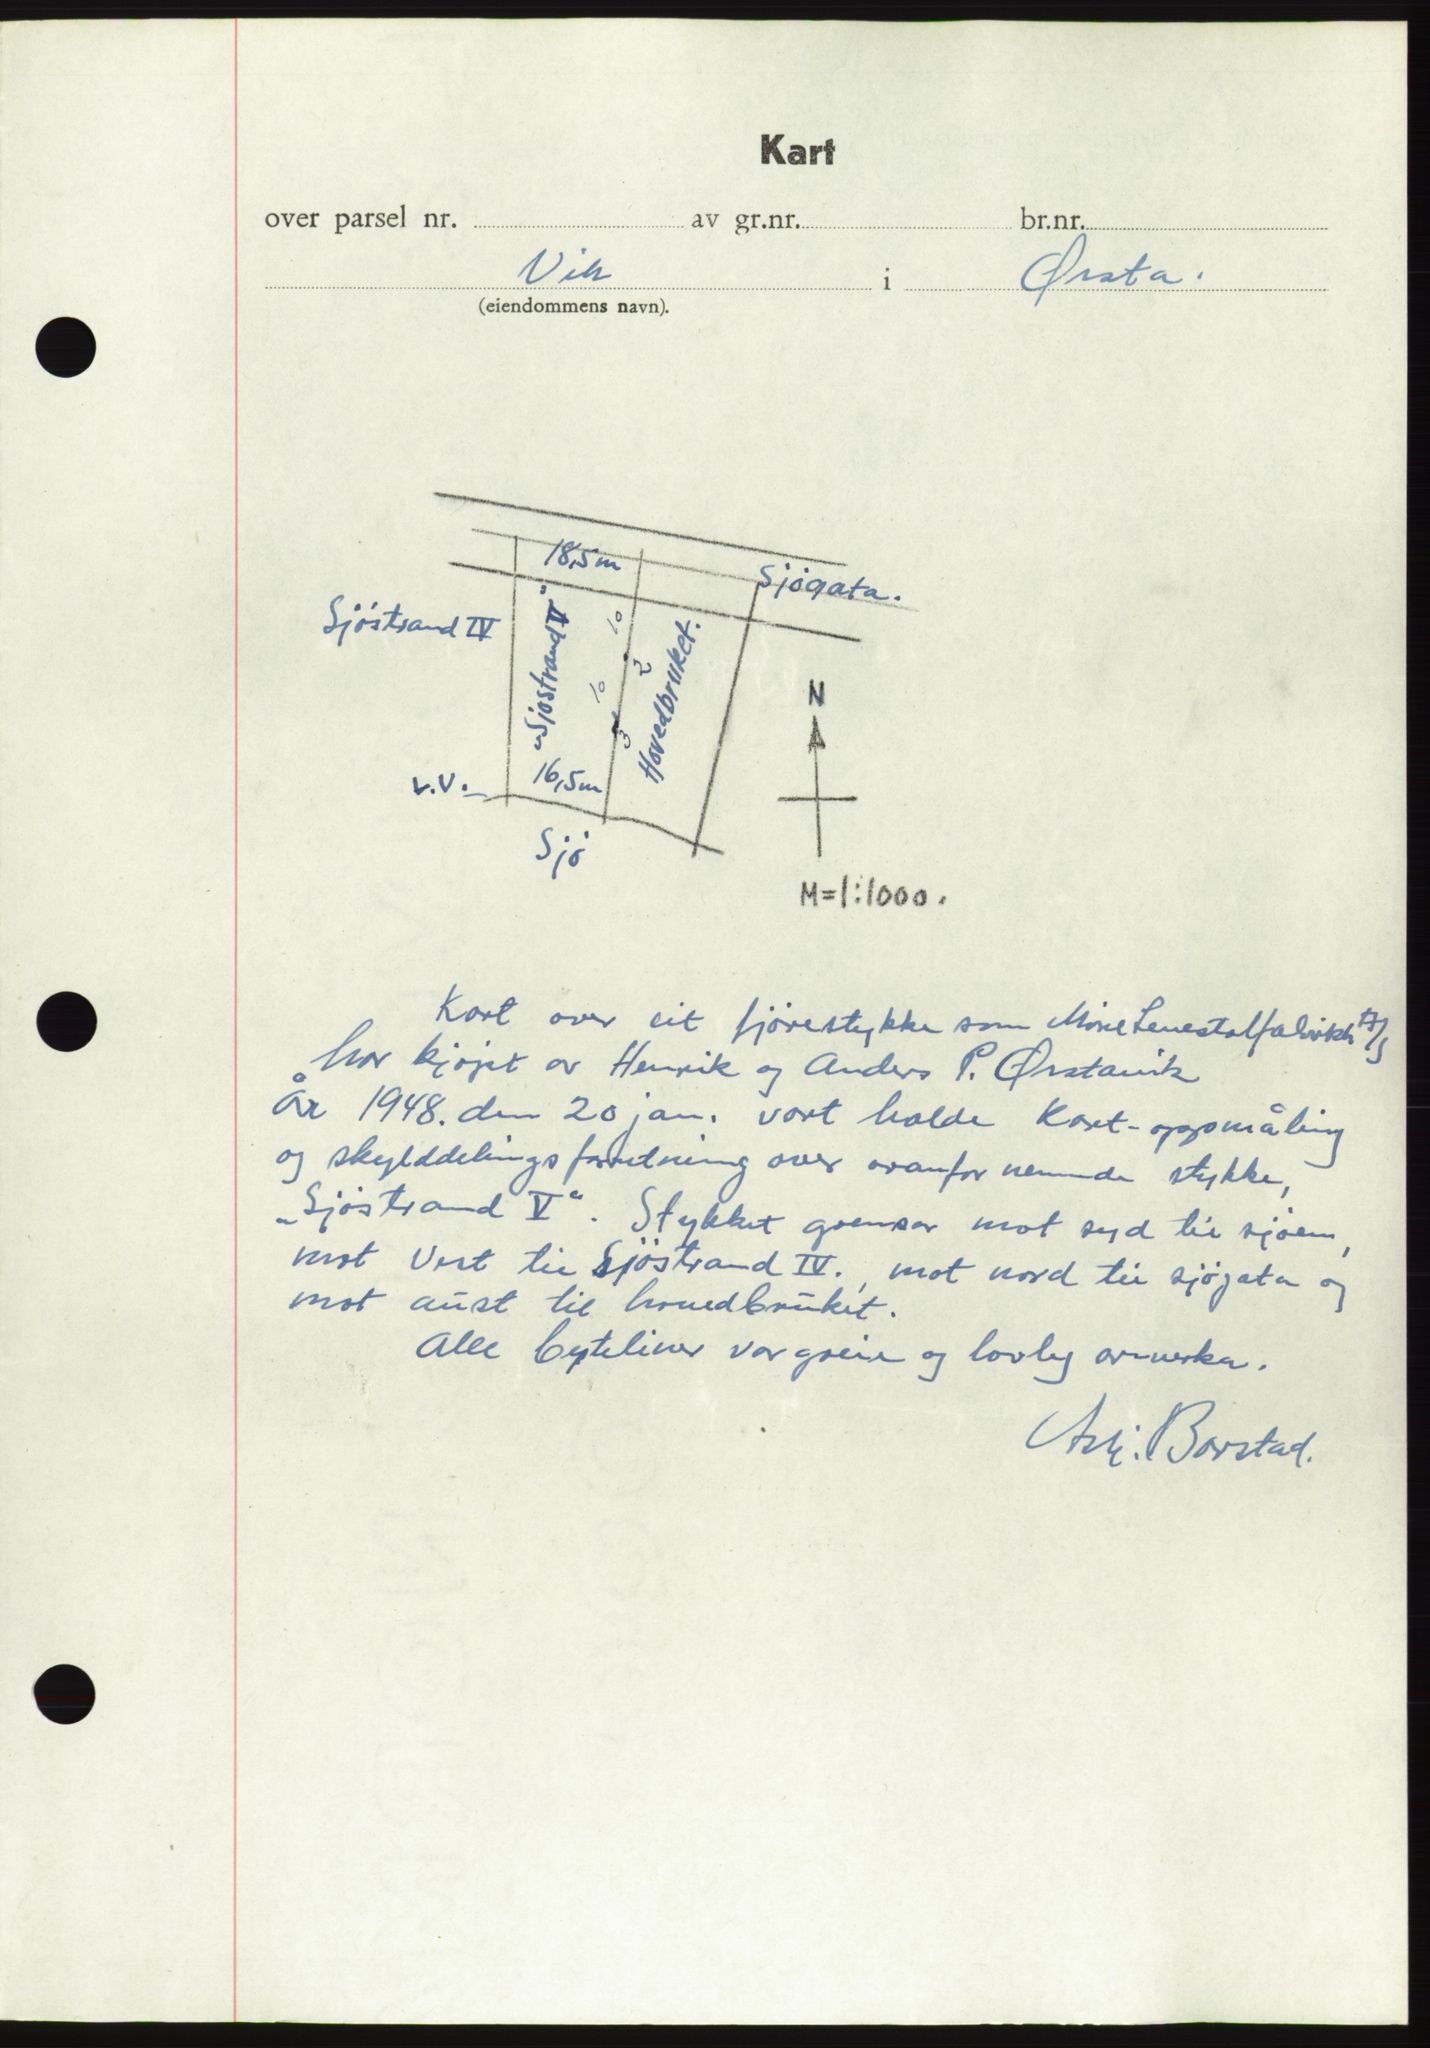 Kart
over parsel nr. av gr.nr. br.nr.
Vik i Ørsta.
(eiendommens navn).
18,5m
Sjøgata.
Sjöstrand IV
„Sjöstrand V"
10
2
10
3
Hovedbruket.
N
v.V.
16,5m
Sjö
M=1:1000.
Kart over eit fjörestykke som Möre Lenestolfabrikk A/S
har kjöpt av Henrik og Anders P. Ørstavik
År 1948. den 20 jan. vart halde Kart-oppmåling
og skylddelingsforretning over ovanfor nemnde stykke,
„Sjöstrand V". Stykket grensar mot syd til sjöen,
mot Vest til Sjöstrand IV., mot nord til sjøgata og
mot aust til hovedbruket.
Alle byteliner var greie og lovleg avmerka.
Borstad.